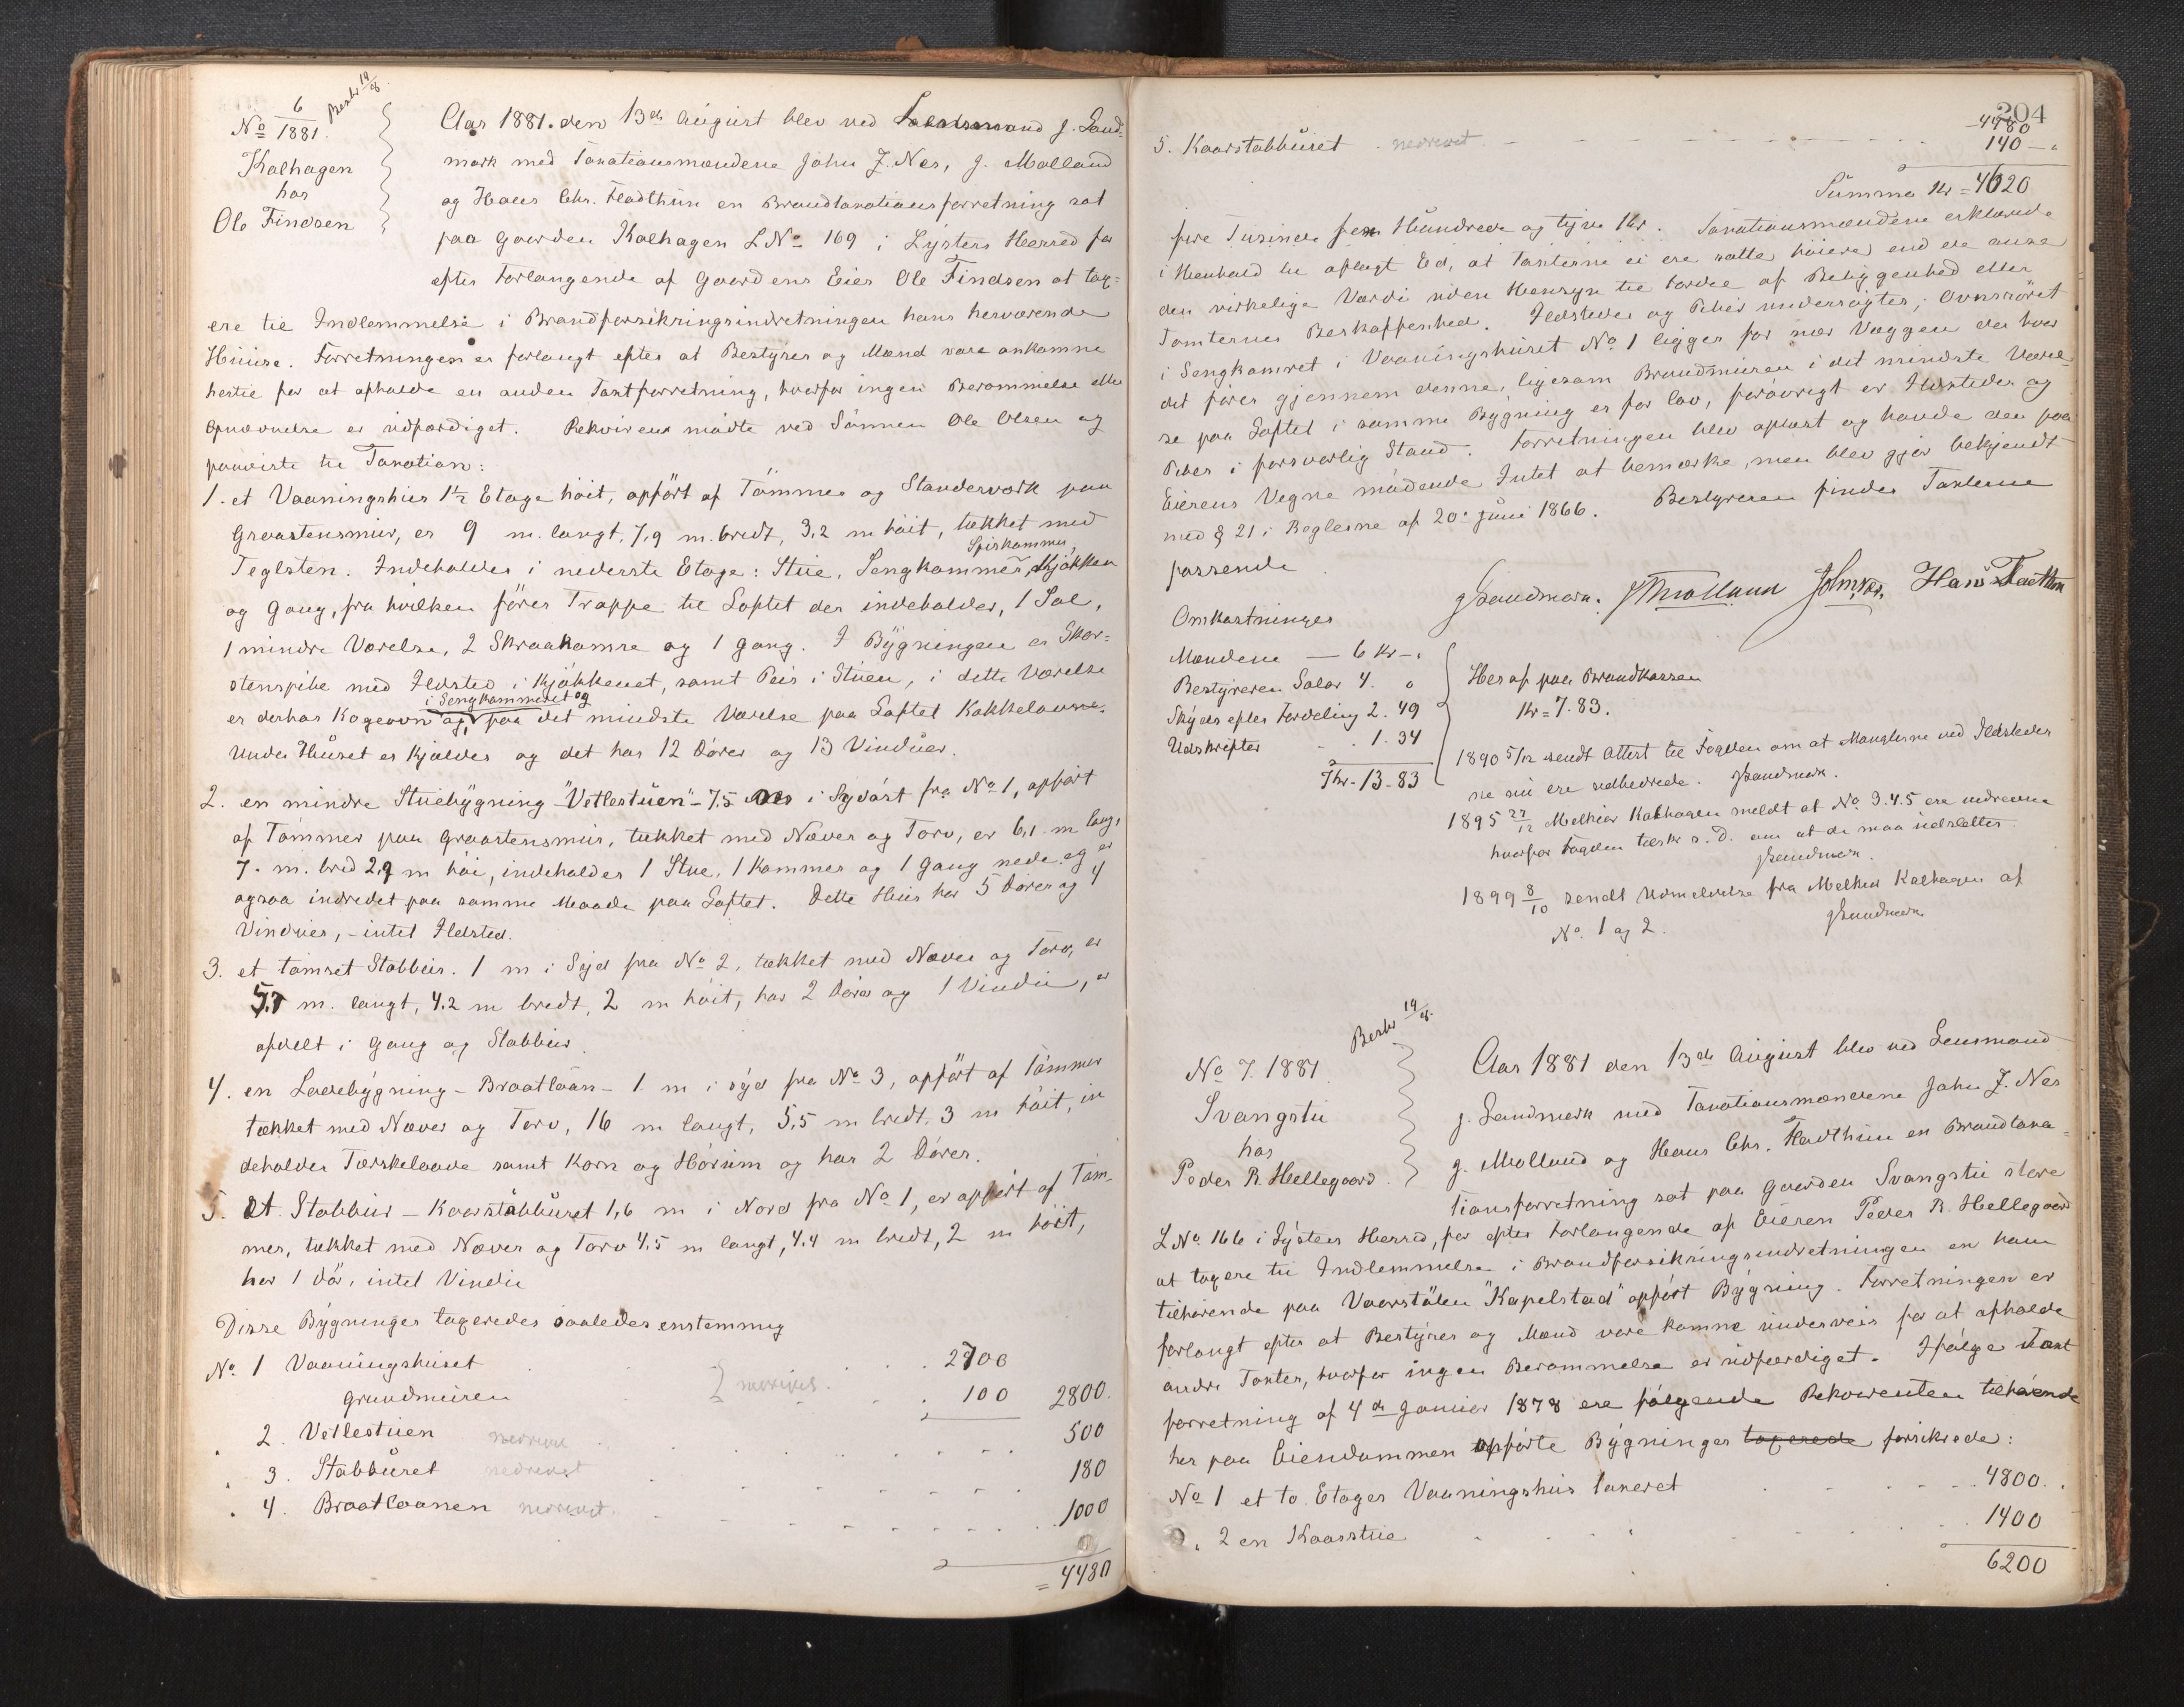 Bestr 14/8.
No 6/1881.
Kalhagen
hos
Ole Findsen
Aar 1881. den 13de August blev ved Lensmand J. Sand=
mark med Taxationsmændene John J. Nes, J. Molland
og Hans Chr. Fladthun en Brandtaxationsforretning sat
paa Gaarden Kalhagen L No 169 i Lysters Herred for
efter Forlangende af Gaardens Eier Ole Findsen at tax=
ere til Indlemmelse i Brandforsikringsindretningen hans herværende
Huuse. Forretningen er forlangt efter at Bestyrer og Mænd vare ankomne
hertil for at afholde en anden Taxtforretning, hvorfor ingen Berammelse eller
Opnævnelse er udfærdiget. Rekvirent mødte ved Sønnen Ole Olsen og
paaviste til Taxation:
1. et Vaaningshus 1½ Etage høit, opført af Tømmer og Standerværk paa
Graastensmur, er 9 m. langt, 7,9 m. bredt, 3,2 m høit, tækket med
Teglsten. Indeholder i nederste Etage: Stue, Sengkammer, Spiskammer, Kjøkken
og Gang, fra hvilken fører Trappe til Loftet der indeholder, 1 Sal,
1 mindre Værelse, 2 Skraakamre og 1 Gang. I Bygningen er Skor=
stenspibe med Ildsted i Kjøkkenet, samt Peis i Stuen, i dette Værelse
er derhos Kogeovn og i Sengkammeret og paa det mindste Værelse paa Loftet Kakkelovne.
Under Huset er Kjælder og det har 12 Døre og 13 Vinduer.
2. en mindre Stuebygning "Vetlestuen" - 7.5 m i Sydøst fra No 1, opført
af Tømmer paa Graastensmur, tækket med Næver og Torv, er 6,1 m lang,
7. m. bred 2,9 m høi, indeholder 1 Stue, 1 Kammer og 1 Gang nede og er
ogsaa indredet paa samme Maade paa Loftet. Dette Huus har 5 Døre og 4
Vinduer, - intet Ildsted.
3. et tømret Stabbur. 1 m i Syd fra No 2, tækket med Næver og Torv, er
5,7 m. langt, 4.2 m bredt, 2 m høit, har 2 Døre og 1 Vindu, er
afdelt i Gang og Stabbur.
4. en Ladebygning - Braatlaan - 1 m i syd fra No 3, opført af Tømmer
tækket med Næver og Torv, 16 m langt, 5,5 m bredt, 3 m høit, in
deholder Tærskelaave samt Korn og Hørum og har 2 Døre.
5. Et Stabbur - Kaarstabburet 1,6 m i Nord fra No 1, er opført af Tøm-
mer, tækket med Næver og Torv 4.5 m langt, 4.4 m bredt, 2 m høit,
har 1 Dør, intet Vindu
Disse Bygninger taxeredes saaledes enstemmig
No 1 Vaaningshuset . . . . 2700
Grundmuren nedrevet. . . 100 2800.
" 2. Vetlestuen nedrevet . . . 500
" 3. Stabburet nedrevet . . . 180
" 4. Braatlaanen nedrevet . . . 1000
= 4480
204
4480
5. Kaarstabburet . nedrevet . - - - 140 - "
Summa Kr = 4620
fire Tusinde sex Hundrede og tyve Kr. Taxationsmændene erklærede
i Henhold til aflagt Ed, at Taxterne ei ere satte høiere end de ansee
den virkelige Værdi uden Hensyn til Fordel af Beliggenhed eller
Tomternes Beskaffenhed. Ildsteder og Piber undersøgtes; Ovnsrøret
i Sengkamret i Vaaningshuset No 1 ligger for nær Væggen der hvor
det fører gjennem denne, ligesom Brandmuren i det mindste Værel-
se paa Loftet i samme Bygning er for lav, forøvrigt er Ildsteder og
Piber i forsvarlig Stand. Forretningen blev oplæst og havde den paa
Eierens Vegne mødende Intet at bemærke, men blev gjør bekjendt
med § 21 i Reglerne af 20de Juni 1866. Bestyreren finder Taxterne
passende
JSandmark. JMolland JohnNes. Hans Flaethun
Omkostninger
Mændene — 6 Kr - "
Bestyreren Salær 4. "
Skyds efter Fordeling 2. 49
Udskrifter . . 1. 34
Thr - 13 - 83
Heraf paa Brandkassen
Kr = 7. 83.
1890 5/12 sendt Attest til Fogden om at Manglerne ved Ildstede
ne nu ere udbedrede. JSandmark.
1895 27/12 Melkior Kalhagen meldt at No 3.4.5 ere nedrevne
hvorfor Fogden tilskr. s. D. om at de maa udslettes.
JSandmark.
1899 8/10 sendt Udmeldelse fra Melkior Kalhagen af
No. 1 og 2.
JSandmark
Bestr 14/8.
No 7. 1881.
Svangstu
hos
Peder R. Hellegaard.
Aar 1881 den 13de August blev ved Lensmand
J. Sandmark med Taxationsmændene John J. Nes
J. Molland og Hans Chr. Fladthun en Brandtaxa=
tionsforretning sat paa Gaarden Svangstu store
L No. 166 i Lysters Herred, for efter Forlangende af Eieren Peder R. Hellegaard
at taxere til Indlemmelse i Brandforsikringsindretningen en ham
tilhørende paa Vaarstølen "Kapelstad" opført Bygning. Forretningen er
forlangt efter at Bestyrer og Mænd vare komne underveis for at afholde
andre Taxter, hvorfor ingen Berammelse er udfærdiget. Ifølge Taxt
forretning af 4de Januar 1878 ere følgende Rekvirenten tilhørende
her paa Eiendommen opførte Bygninger taxerede forsikrede:
No 1 et to Etages Vaaningshus taxeret . . . 4800.
" 2 en Kaarstue . . . 1400
6200